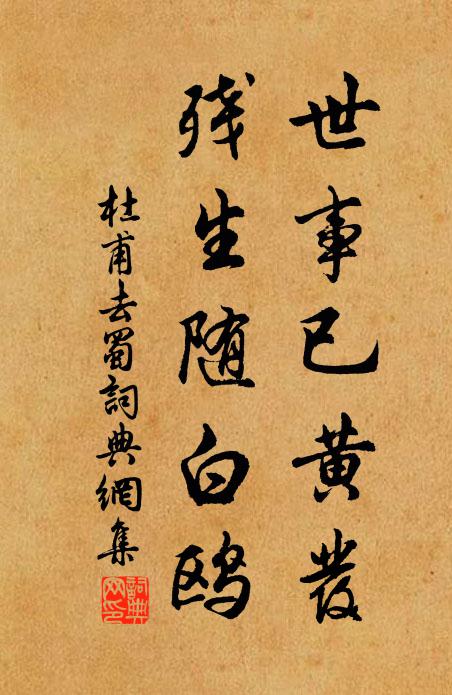 世事已黄發
残生随白鸥
杜甫去蜀詞典網集
詞典网印